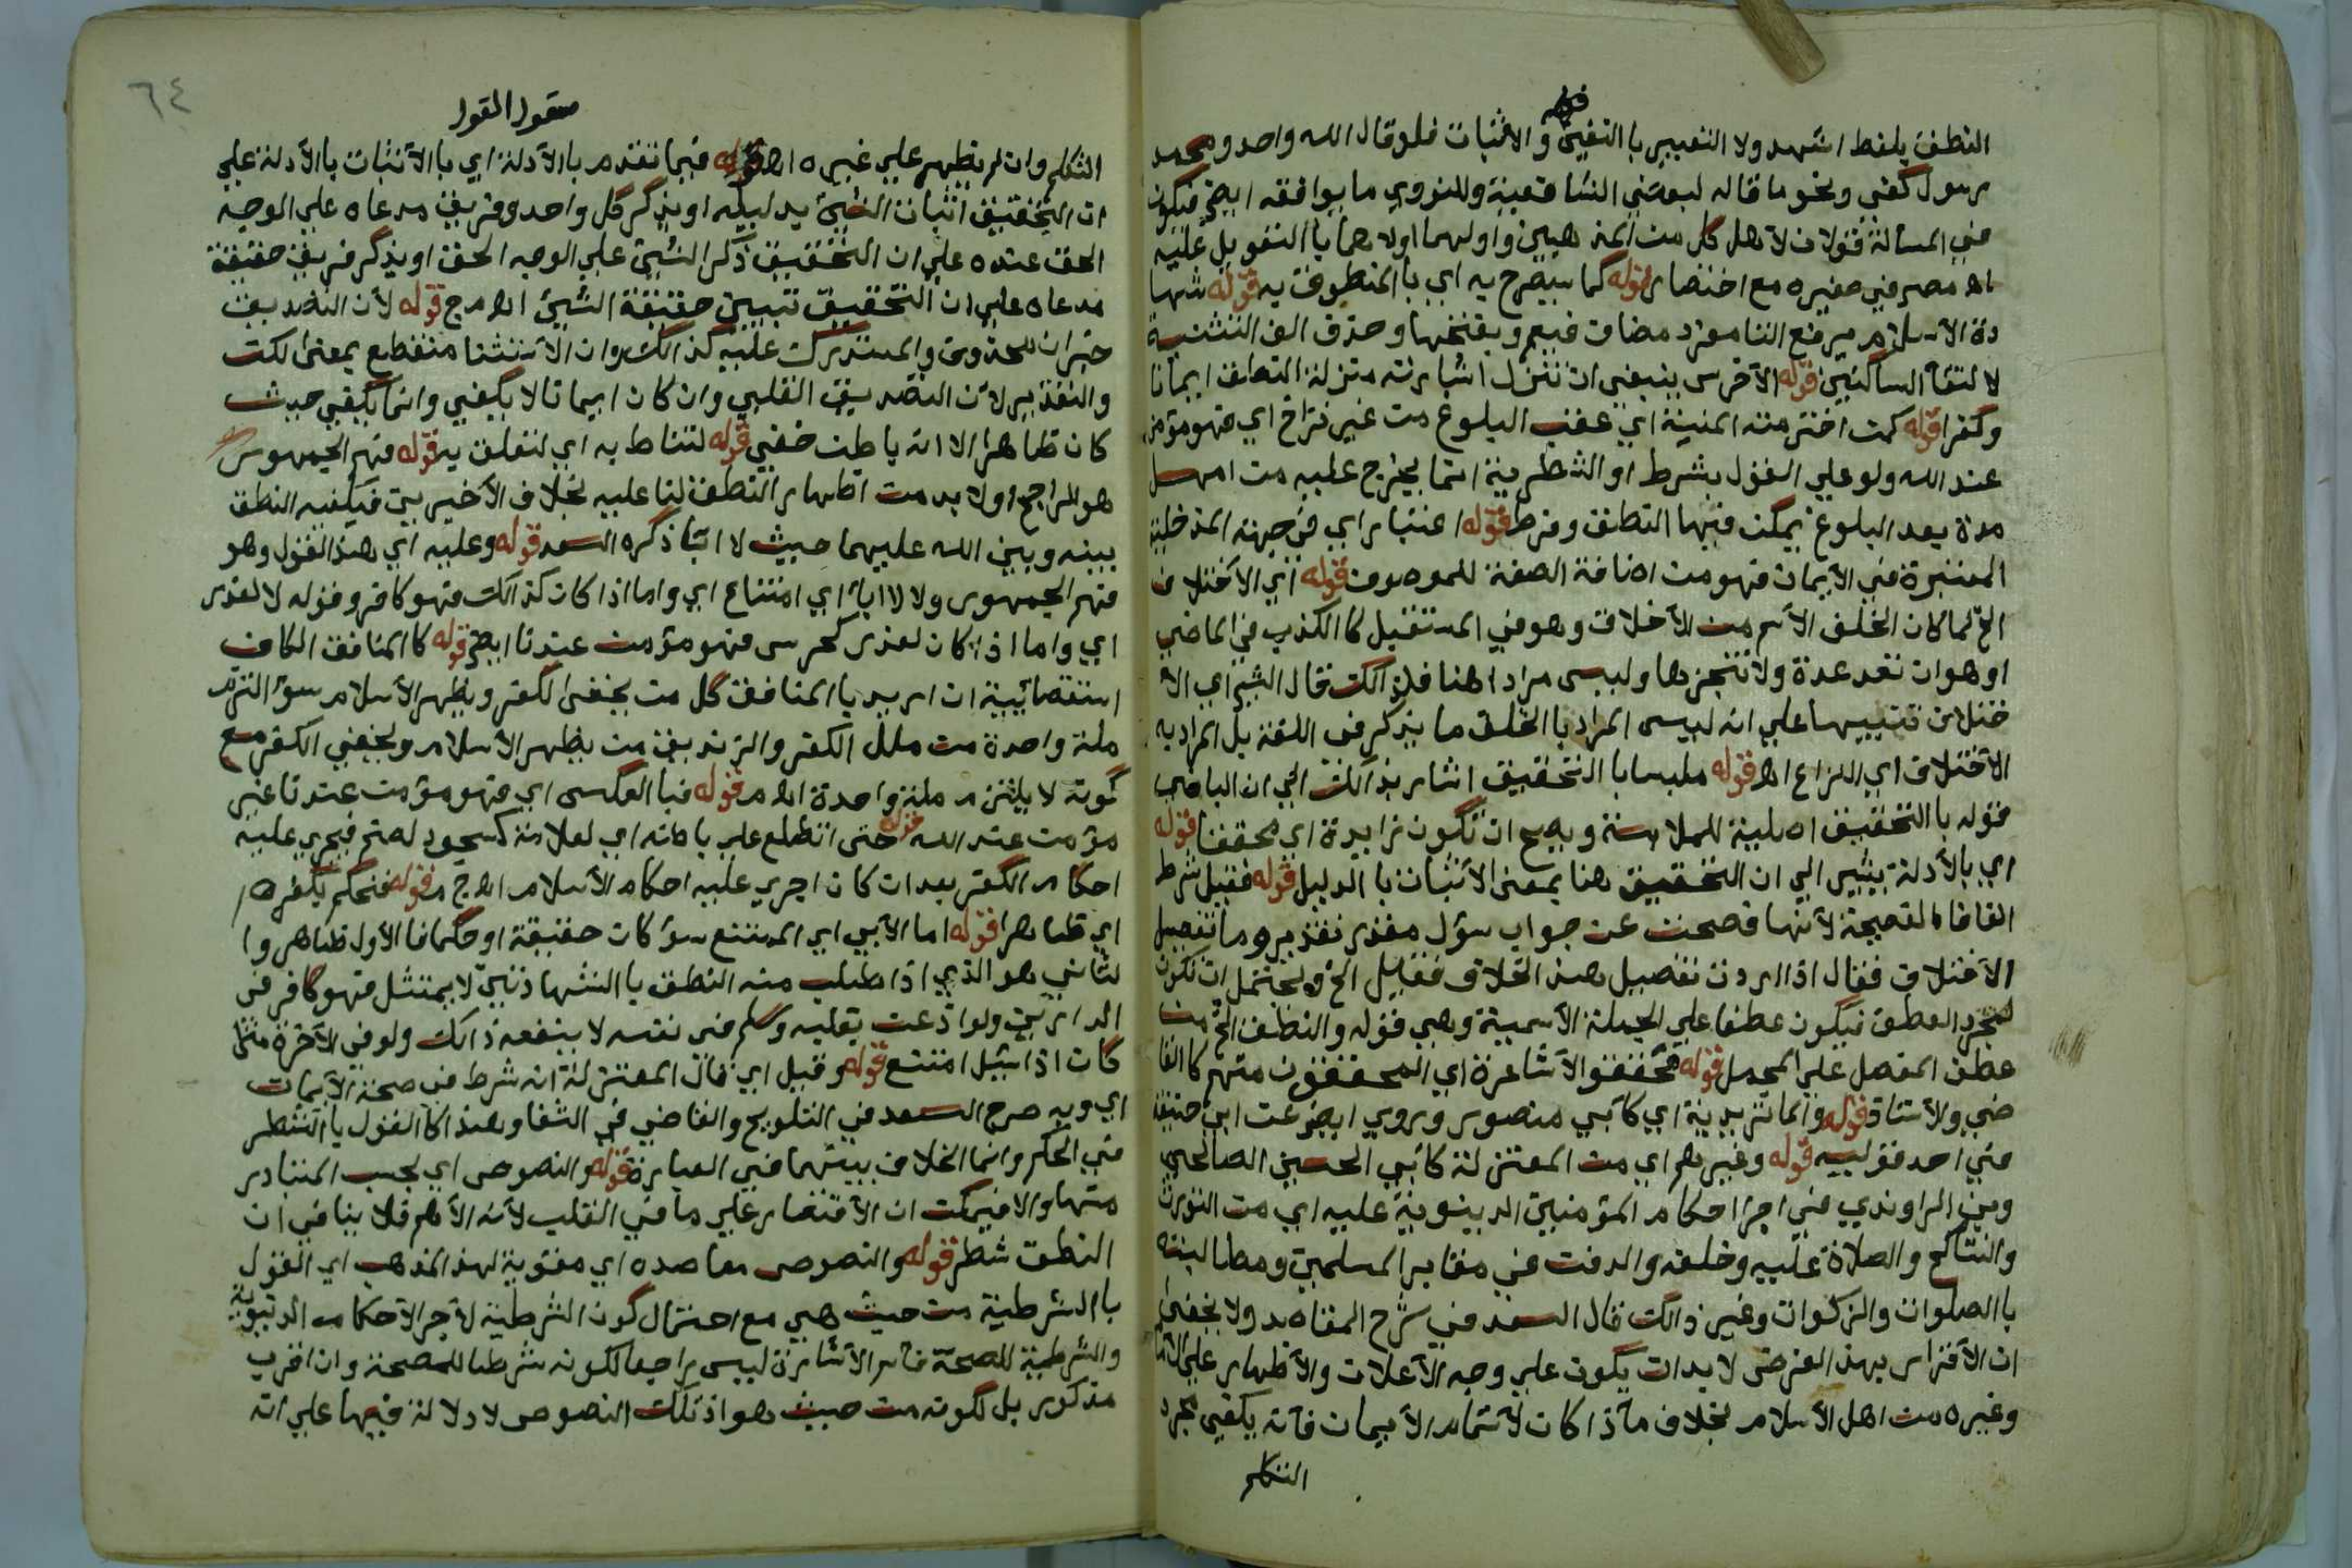 النطق بلفظ اشهد ولا التعبير با النفي والاثبات فلو قال الله واحد ومحمد
رسول كفى ونحو ما قاله لبعض الشافعية وللنووي ما يوافقه ايض فيكون
في المسالة قولان لاهل كل من المذهبين واولهما اولاهما با التعويل عليه
اه مصر في صغيره مع اختصار قوله كما سيصرح به اي با المنطوق به قوله شها
دة الاسلام برفع التا مفرد مضاف فيعم وبفتحها وحذف الف التثنية
لا لتقا الساكنين قوله الاخرس ينبغي ان تنزل اشارته منزلة النطق ايمانا
وكفرا قوله كمن اخترمته المنية اي عقب البلوغ من غير تراخ اي فهو مؤمن
عند الله ولو علي القول بشرط او الشطرية انما يخرج عليه من امهل
مدة بعد البلوغ يمكن فيها النطق وفرط قوله اعتبار اي في جهته المدخلية
المعتبرة في الايمان فهو من اضافة الصفة للموصوف قوله اي الاختلاف
الخ لما كان الخلف الاسم من الاخلاف وهو في المستقبل كا الكذب في الماضي
او هو ان تعد عدة ولا تنجزها وليس مرادا هنا فلذالك قال الشيخ اي الا
ختلاف تنبيها علي انه ليس المراد با الخلف ما يذكر في اللغة بل المراد به
الاختلاف اي النزاع اه قوله ملبسا با التحقيق اشار بذالك الي ان البا في
قوله با التحقيق اصلية للملابسة ويصح ان تكون زايدة اي محققا قوله
اي بالأدلة يشير الي ان التحقيق هنا بمعني الاثبات با الدليل قوله فقيل شرط
الفا فا الفصيحة لانها فصحت عن جواب سؤل مقدر تقديره وما تفصيل
الاختلاف فقال اذا اردت تفصيل هذا الخلاف فقيل الخ ويحتمل ان تكون
لمجرد العطف فيكون عطفا علي الجملة الاسمية وهي قوله والنطق الخ من
عطف المفصل علي المجمل قوله محققوا الاشاعرة اي المحققون منهم كا القا
ضي والاستاذ قوله والماتريدية اي كابي منصور وروي ايض عن ابي حنيفة
في احد قوليه قوله وغيرهم اي من المعتزلة كابي الحسين الصالحي
وبن الراوندي في اجرا احكام المؤمنين الدنيوية عليه اي من التورث
والتناكح والصلاة عليه وخلفه والدفن في مقابر المسلمين ومطالبته
با الصلوات والزكوات وغير ذالك قال السعد في شرح المقاصد ولا يخفى
ان الاقرار بهذا الغرض لا بد ان يكون علي وجه الاعلان والاظهار علي الامام
وغيره من اهل الاسلام بخلاف ما اذا كان لاتمام الايمان فانه يكفي مجرد
التكلم
٦٤
مقول القول
التكلم وان لم يظهر علي غيره اه قوله فيما تقدم بالادلة اي با الاثبات با الادلة علي
ان التحقيق اثبات الشيئ بدليله او يذكر كل واحد وفريق مدعاه علي الوجه
الحق عنده علي ان التحقيق ذكر الشيئ علي الوجه الحق او يذكر فريق حقيقة
مدعاه علي ان التحقيق تبيين حقيقة الشيئ اه م ج قوله لان التصديق
خبر ان محذوف والمستدرك عليه كذالك وان الاستثنا منقطع بمعنى لكن
والتقدير لان التصديق القلبي وان كان ايمانا لا يكفي وانما يكفي حيث
كان ظاهرا الا انه باطن خفي قوله لتناط به اي لتعلق به قوله فهم الجمهور
هو الراجح اولا بد من اظهار النطق لنا عليه بخلاف الاخيرين فيكفيه النطق
بينه وبين الله عليهما حيث لا ابا ذكره السعد قوله وعليه اي هذا القول وهو
فهم الجمهور ولا لابا اي امتناع اي واما اذا كان كذالك فهو كافر وقوله لا لعذر
اي واما اذا كان لعذر كخرس فهو مؤمن عندنا ايض قوله كا المنافق الكاف
استقصائية ان اريد با المنافق كل من يخفى الكفر ويظهر الاسلام سوا التزم
ملة واحدة من ملل الكفر والزنديق من يظهر الاسلام ويخفي الكفر مع
كونه لا يلتزم ملة واحدة اه م قوله فبا العكس اي فهو مؤمن عندنا غير
مؤمن عند الله قوله حتى انطلع علي باطنه اي لعلامة كسجود لصنم فيجري عليه
احكام الكفر بعد ان كان اجري عليه احكام الاسلام اه ج م قوله فنحكم بكفرها
اي ظاهرا قوله اما الابي اي الممتنع سؤ كان حقيقة او حكما فا الاول ظاهر وا
لثاني هو الذي اذا طلب منه النطق با الشهادتين لا يمتثل فهو كافر في
الدارين ولو اذعن بقلبه وسلم في نفسه لا ينفعه ذالك ولو في الاخرة
كان اذا سئل امتنع قوله وقيل اي قال المعتزلة انه شرط في صحة الايمان
اي وبه صرح السعد في التلويح والقاضي في الشفا وهذا كا القول با الشطر
في الحكم وانما الخلاف بينهما في العبارة قوله والنصوص اي بحسب المتبادر
منها والا فيمكن ان الاقتصار علي ما في القلب لانه الاهم فلا ينافي ان
النطق شطر قوله والنصوص معاضده اي مقوية لهذا المذهب اي القول
با الشرطية من حيث هي مع احتمال كون الشرطية لاجرا الاحكام الدنيوية
والشرطية للصحة فاسم الاشارة ليس راجعا لكونه شرطا للصحة وان اقرب
مذكور بل لكونه من حيث هو اذ تلك النصوص لا دلالة فيها علي انه